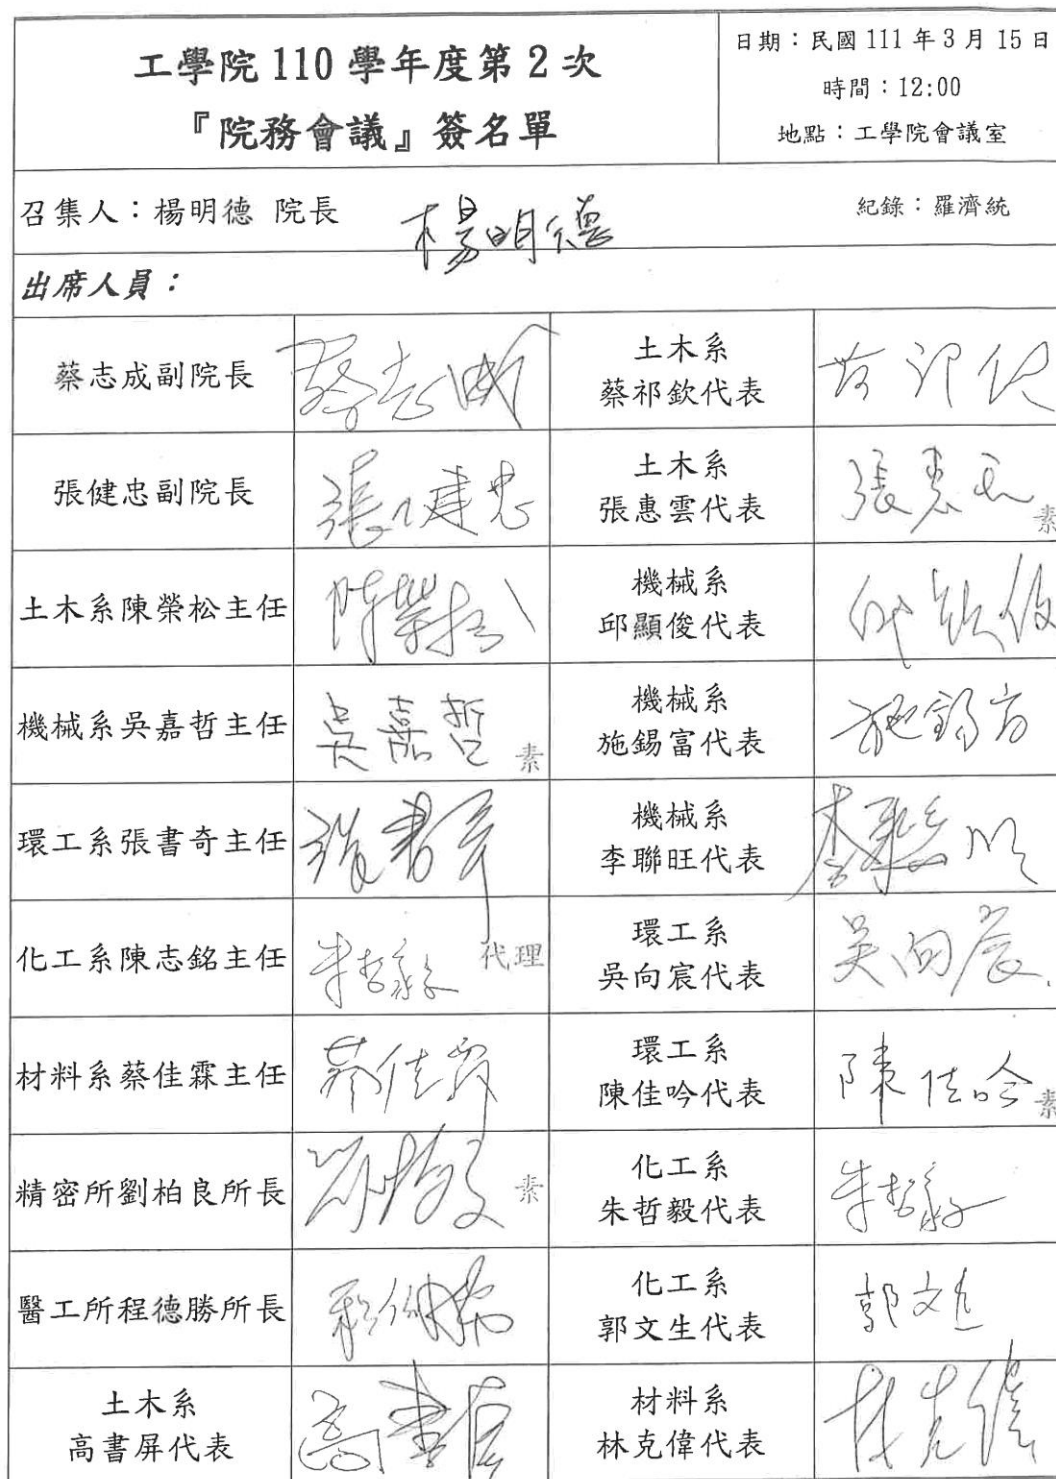 工學院 110 學年度第 2 次
『院務會議』簽名單
日期：民國 111 年 3 月 15 日
時間：12:00
地點：工學院會議室
召集人：楊明德 院長
楊明德
紀錄：羅濟統
出席人員：
蔡志成副院長
蔡志成
土木系
蔡祁欽代表
張健忠副院長
張健忠
土木系
張惠雲代表
張惠雲
素
土木系陳榮松主任
陳榮松
機械系
邱顯俊代表
機械系吳嘉哲主任
吳嘉哲
素
機械系
施錫富代表
施錫富
環工系張書奇主任
張書奇
機械系
李聯旺代表
李聯旺
化工系陳志銘主任
朱哲毅
代理
環工系
吳向宸代表
吳向宸
材料系蔡佳霖主任
蔡佳霖
環工系
陳佳吟代表
陳佳吟
素
精密所劉柏良所長
素
化工系
朱哲毅代表
朱哲毅
醫工所程德勝所長
化工系
郭文生代表
郭文生
土木系
高書屏代表
高書屏
材料系
林克偉代表
林克偉